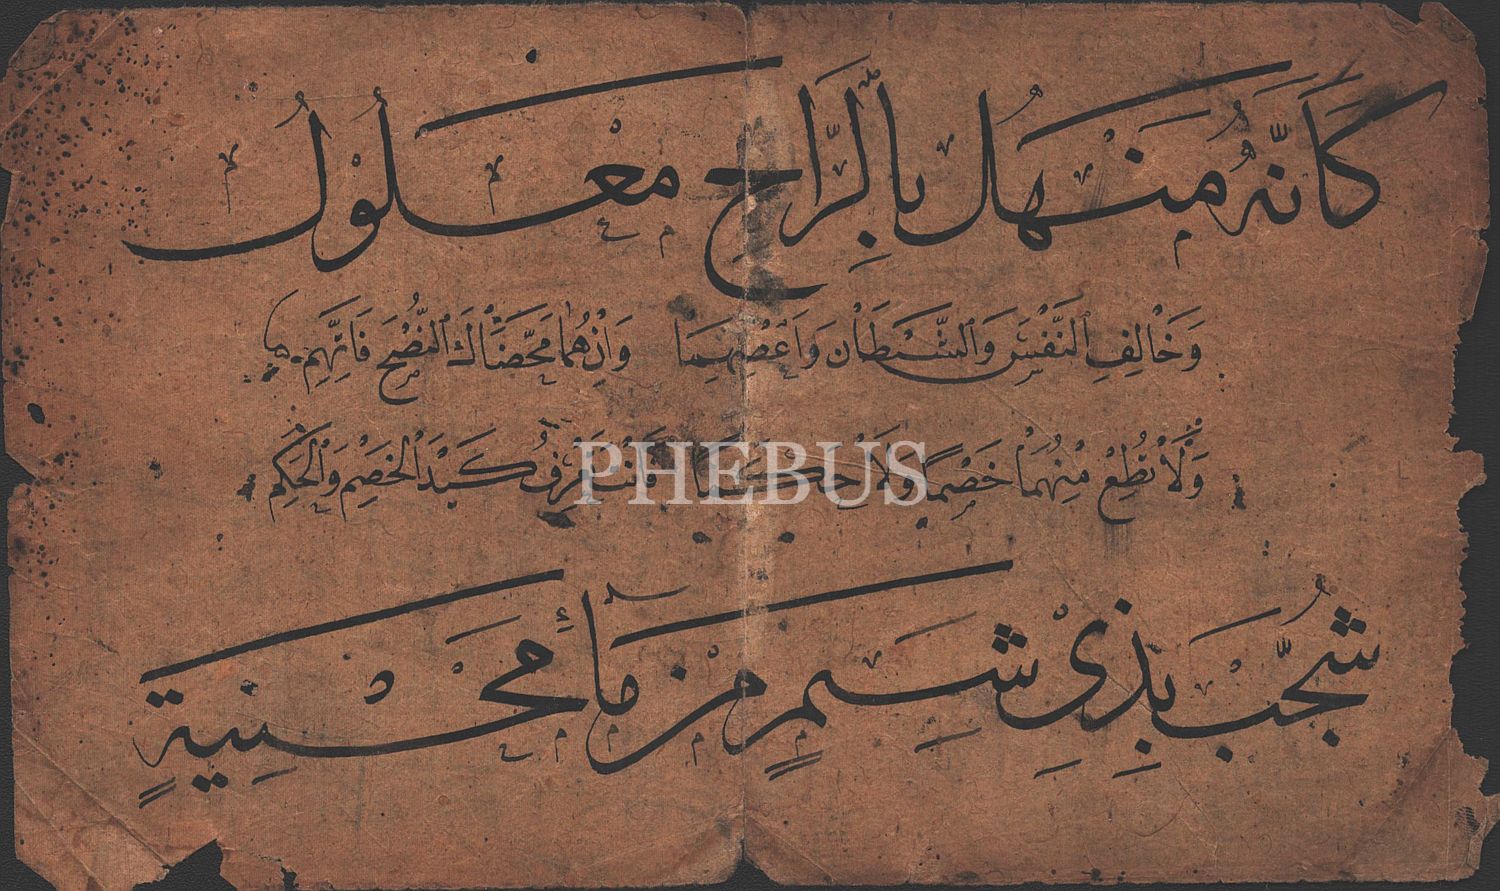 كَأَنَّهُ مُنْهَلٌ بِالرَّاحِ مَعْلُولُ
وَخَالِفِ النَّفْسَ وَالشَّيْطَانَ وَاعْصِهِمَا وَاِنْ هُمَا مَحَّضَاكَ النُّصْحَ فَاتَّهِمِ
وَلَا تُطِعْ مِنْهُمَا خَصْمًا وَلَا حَكَمًا فَاَنْتَ تَعْرِفُ كَيْدَ الْخَصْمِ وَالْحَكَمِ
PHEBUS
شُجَّتْ بِذِي شَيَمٍ مِنْ مَاءِ مَحْنِيَةٍ